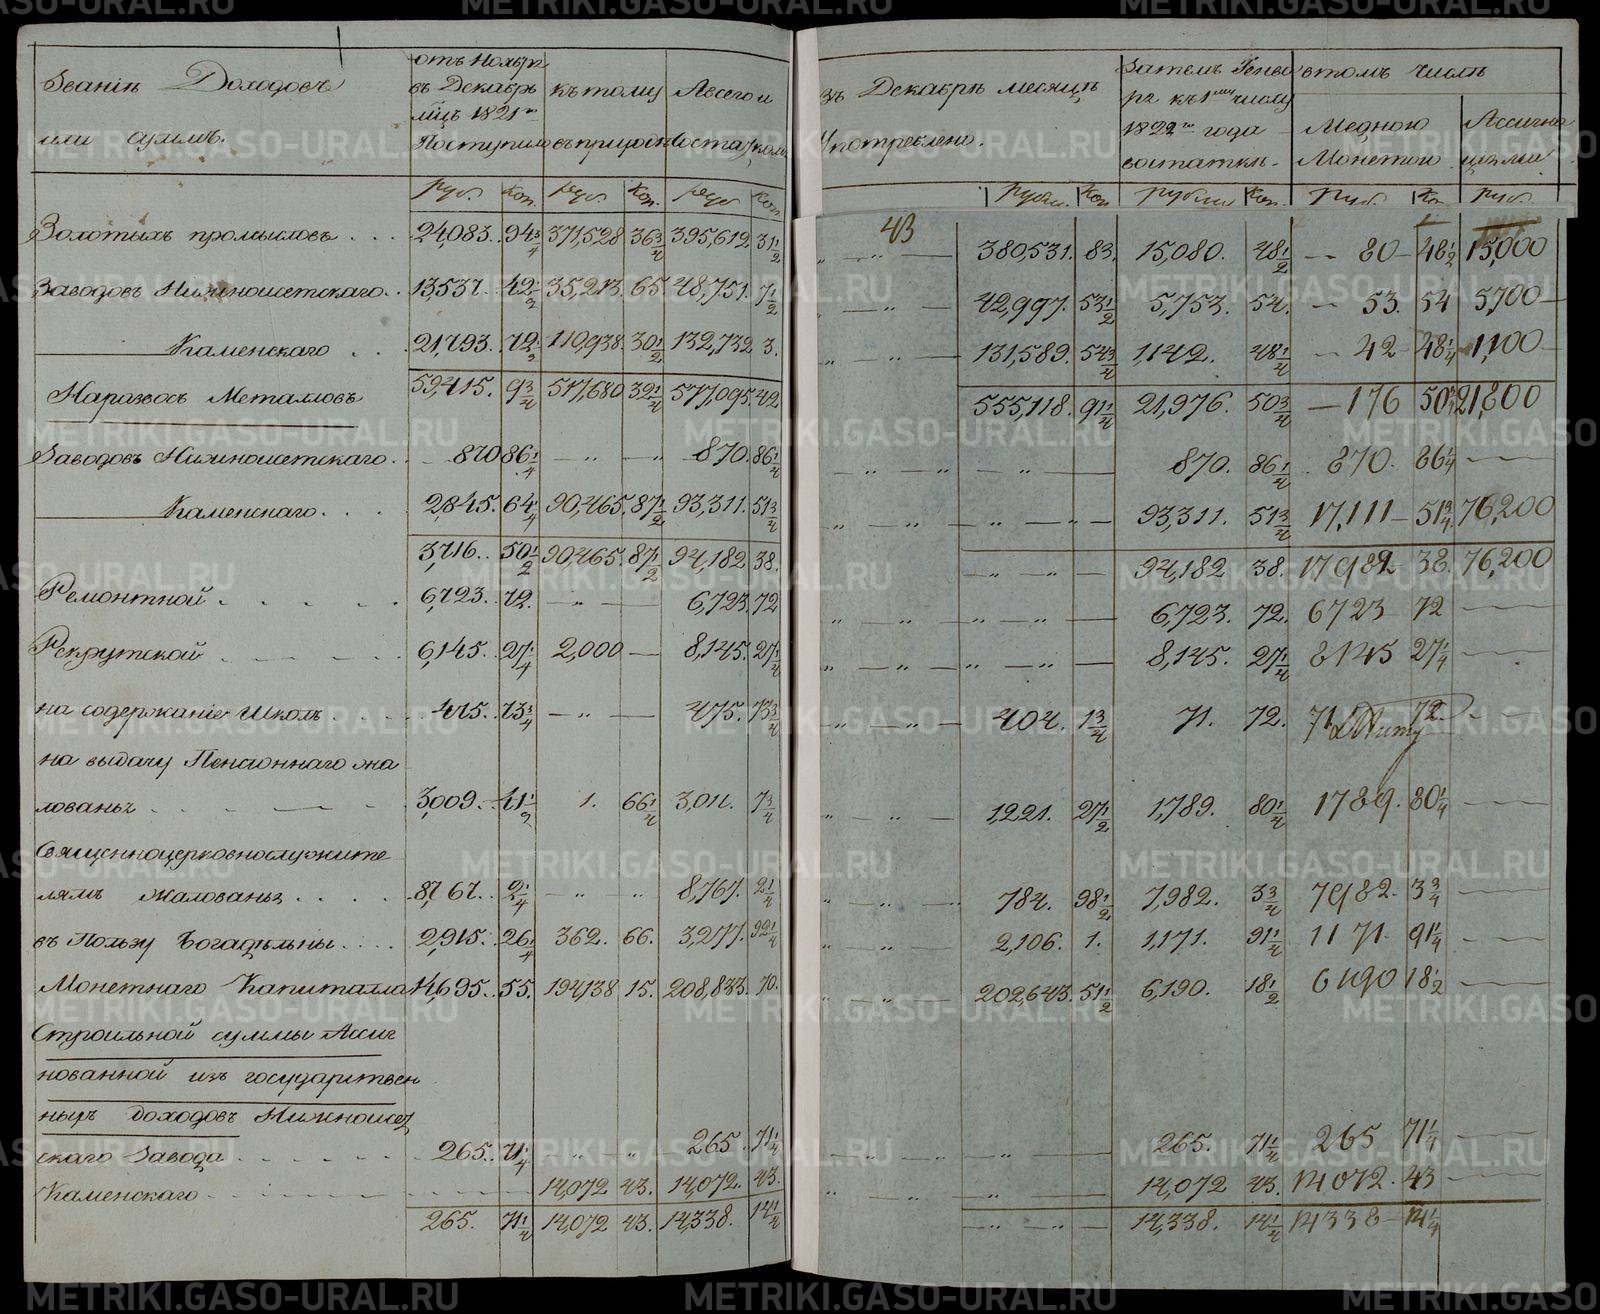 Званіе Доходовъ
или суммъ.
отъ Ноября
въ Декабрь
м̃цъ 1821го
Поступило
къ тому
въ приходъ
А всего и
съ остаткомъ
Руб. Коп. Руб. Коп. Руб. Коп.
Золотыхъ промысловъ . . . 24,083. 94 3/4 371,528 36 3/4 395,612. 31 1/2
Заводовъ Нижноисетскаго . . 13,537. 42 1/2 35,213. 65 48,751. 7 1/2
Каменскаго . . 21,793. 72 1/2 110,938. 30 1/2 132,732 3.
59,415. 9 3/4 517,680 32 1/4 577,095. 42
На развозъ Металловъ
Заводовъ Нижноисетскаго . 870 86 1/4 — „ — — „ — 870. 86 1/4
Каменскаго . . . . 2,845. 64 1/4 90,465. 87 1/2 93,311. 51 3/4
3,716. 50 1/2 90,465. 87 1/2 94,182 38.
Ремонтной . . . . . 6,723. 72. — „ — — 6,723. 72
Рекрутской . . . . 6,145. 27 1/4 2,000 — 8,145. 27 1/4
на содержаніе Школъ . . . . 475. 73 3/4 — „ — — 475. 73 3/4
на выдачу Пенсіоннаго жа
лованья . . . . 3,009. 41 1/2 1. 66 1/4 3,011. 7 3/4
Священноцерковнослужите
лямъ жалованья . . . . 8,767. 2 1/4 — „ — „ 8,767. 2 1/4
въ Пользу Богадѣльны . . . . 2,915. 26 1/4 362. 66. 3,277. 92 1/4
Монетнаго Капиталла 14,695. 55. 194,138 15. 208,833. 70.
Строильной суммы Ассиг
нованной изъ государствен
ныхъ доходовъ Нижноисет
скаго Завода . . . . 265. 71 1/4 „ — „ 265. 71 1/4
Каменскаго . . . . 14,072 43. 14,072. 43.
265. 71 1/4 14,072 43. 14,338. 14 1/4
Въ Декабрѣ мѣсяцѣ
Употреблено.
Затемъ Генва
ря къ 1му числу
1822го года
въ остаткѣ.
въ томъ числѣ
Медною
Монетою
Ассигна
циями
Рубли. Коп Рубли Коп. Руб. Ко Руб.
43
„ — „ — 380,531. 83. 15,080. 48 1/2 — 80 — 48 1/2 15,000
„ — „ — 42,997. 53 1/2 5,753. 54. — 53. 54 5,700 —
„ — „ — 131,589. 54 3/4 1,142. 48 1/4 — 42 — 48 1/4 1,100 —
555,118. 91 1/4 21,976. 50 3/4 — 176 50 3/4 21,800
— „ — „ — „ — 870. 86 1/4 870. 86 1/4 —
„ — „ — „ — „ — 93,311. 51 3/4 17,111 — 51 3/4 76,200
— „ — „ — 94,182 38. 17982 38. 76,200
„ — „ — „ — „ — 6,723. 72. 6723 72 —
„ — „ — „ — „ — 8,145. 27 1/4 8145 27 1/4 —
„ — „ — 404. 1 3/4 71. 72. 71 72. —
„ — „ — 1,221. 27 1/2 1,789. 80 1/4 1789. 80 1/4 —
„ — „ — 784. 98 1/2 7,982. 3 3/4 7982. 3 3/4 —
„ — „ 2,106. 1. 1,171. 91 1/4 1171. 91 1/4 —
„ — „ — 202,643. 51 1/2 6,190. 18 1/2 6190 18 1/2 —
„ — „ — „ — 265. 71 1/4 265 71 1/4 —
„ — „ — „ — 14,072 43. 14072. 43 —
— „ — „ — 14,338. 14 1/4 14338 — 14 1/4
METRIKI.GASO-URAL.RU